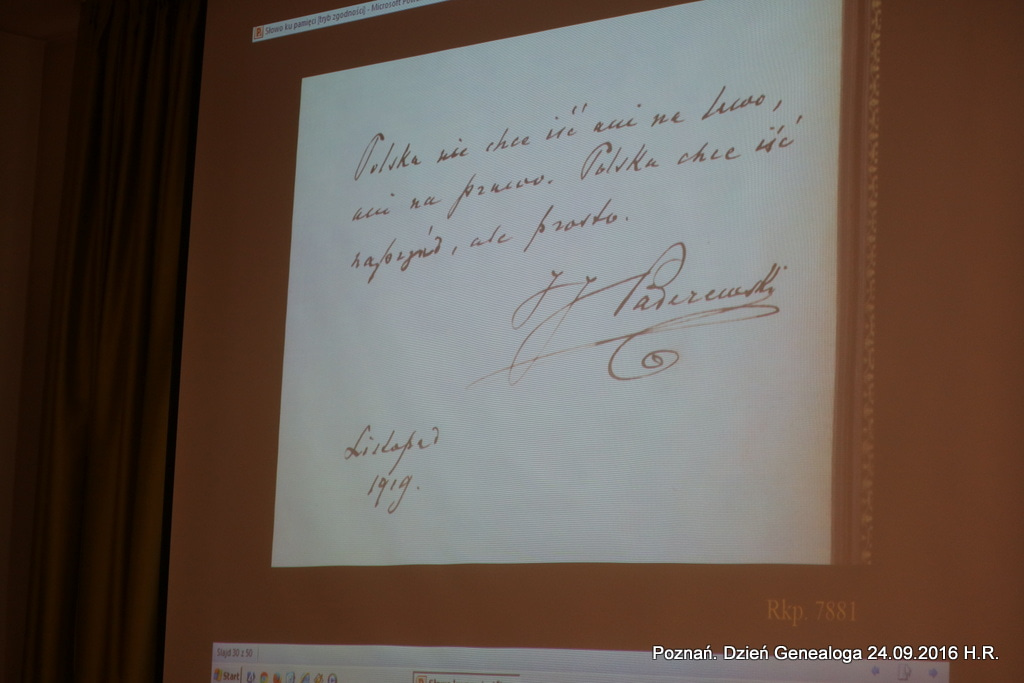 Słowo ku pamięci [tryb zgodności] - Microsoft
Polska nie chce iść ani na lewo,
ani na prawo. Polska chce iść
naprzód, ale prosto.
JJ Paderewski
Listopad
1919.
Rkp. 7881
Slajd 30 z 50
Start
Poznań. Dzień Genealoga 24.09.2016 H.R.